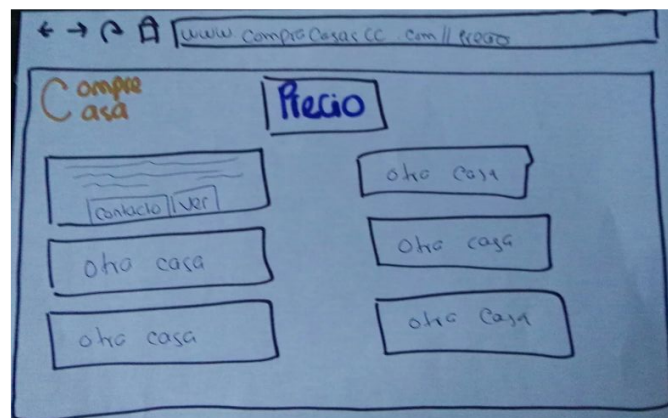 www.compraCasasCC.com//Precio
Compre
Casa
Precio
Contacto Ver
Otra casa
Otra casa
Otra casa
Otra casa
Otra Casa